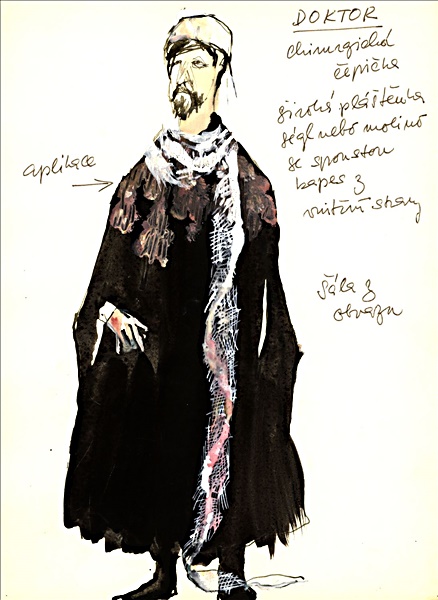 DOKTOR
chirurgická
čepička
široká pláštěnka
ségl nebo molino
se spoustou
kapes z
vnitřní strany
aplikace
šála z
obvazu